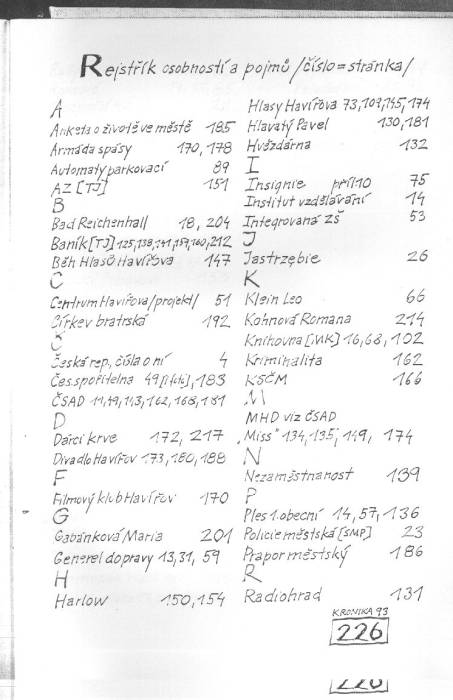 Rejstřík osobností a pojmů /číslo=stránka/
A
Anketa o životě ve městě 185
Armáda spásy 170, 178
Automaty parkovací 89
AZ [TJ] 151
B
Bad Reichenhall 18, 204
Baník [TJ] 125, 138, 141, 159, 160, 212
Běh Hlasů Havířova 147
C
Centrum Havířova /projekt/ 51
Církev bratrská 192
Č
Česká rep., čísla o ní 4
Čes. spořitelna 49 [i foto], 183
ČSAD 11, 49, 143, 162, 168, 181
D
Dárci krve 172, 217
Divadlo Havířov 173, 180, 188
F
Filmový klub Havířov 170
G
Gabánková Maria 201
Generel dopravy 13, 31, 59
H
Harlow 150, 154
Hlasy Havířova 73, 109, 155, 174
Hlavatý Pavel 130, 181
Hvězdárna 132
I
Insignie příl 10 75
Institut vzdělávání 14
Integrovaná ZŠ 53
J
Jastrzębie 26
K
Klein Leo 66
Kohnová Romana 214
Knihovna [MK] 16, 68, 102
Kriminalita 162
KSČM 166
M
MHD viz ČSAD
„Miss" 134, 135, 149, 174
N
Nezaměstnanost 139
P
Ples 1. obecní 14, 57, 136
Policie městská [SMP] 23
Prapor městský 186
R
Radiohrad 131
KRONIKA 93
226